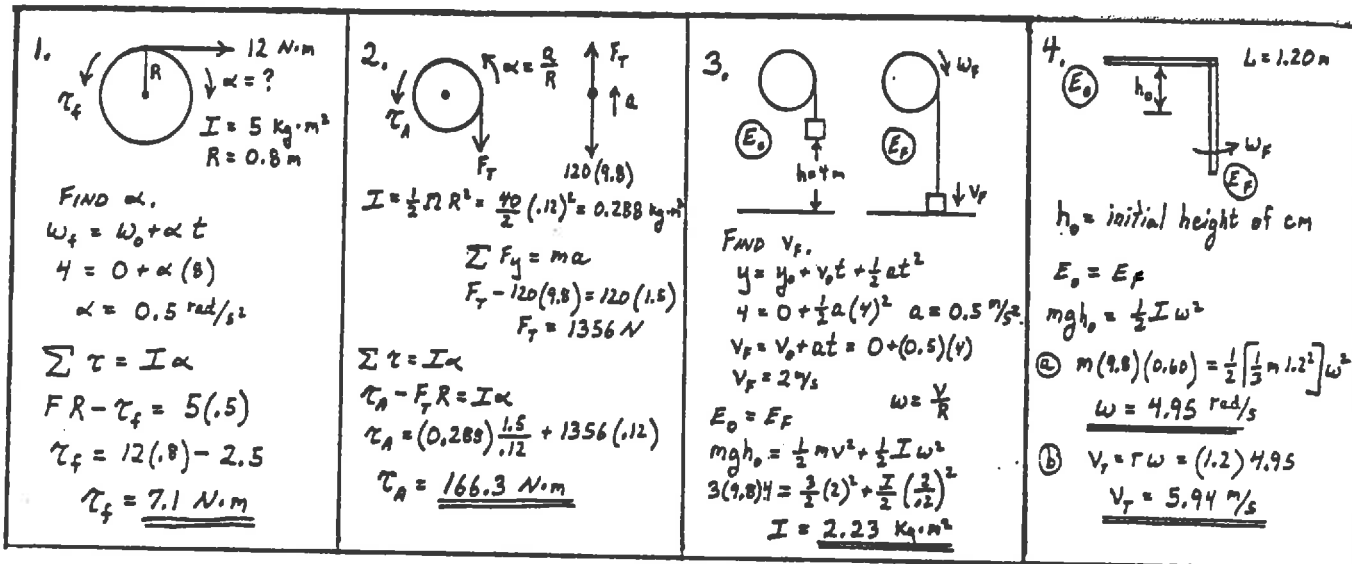 1.
12 N·m
R
τ_f
α = ?
I = 5 kg·m²
R = 0.8 m
FIND α.
ω_f = ω_0 + α t
4 = 0 + α (8)
α = 0.5 rad/s²
Σ τ = I α
F R - τ_f = 5(.5)
τ_f = 12(.8) - 2.5
τ_f = 7.1 N·m
2.
α = a/R
F_T
a
τ_A
F_T
120(9.8)
I = 1/2 M R² = 40/2 (.12)² = 0.288 kg·m²
Σ F_y = ma
F_T - 120(9.8) = 120(1.5)
F_T = 1356 N
Σ τ = I α
τ_A - F_T R = I α
τ_A = (0.288) 1.5/.12 + 1356 (.12)
τ_A = 166.3 N·m
3.
ω_F
E_0
E_F
h = 4 m
V_F
FIND V_F.
y = y_0 + v_0 t + 1/2 at²
4 = 0 + 1/2 a(4)² a = 0.5 m/s²
V_F = V_0 + at = 0 + (0.5)(4)
V_F = 2 m/s
ω = V/R
E_0 = E_F
mgh_0 = 1/2 mv² + 1/2 I ω²
3(9.8)4 = 3/2 (2)² + I/2 (2/.2)²
I = 2.23 kg·m²
4.
L = 1.20 m
E_0
h_0
ω_F
E_F
h_0 = initial height of cm
E_0 = E_F
mgh_0 = 1/2 I ω²
(a) m(9.8)(0.60) = 1/2 [1/3 m 1.2²] ω²
ω = 4.95 rad/s
(b) V_T = rω = (1.2) 4.95
V_T = 5.94 m/s